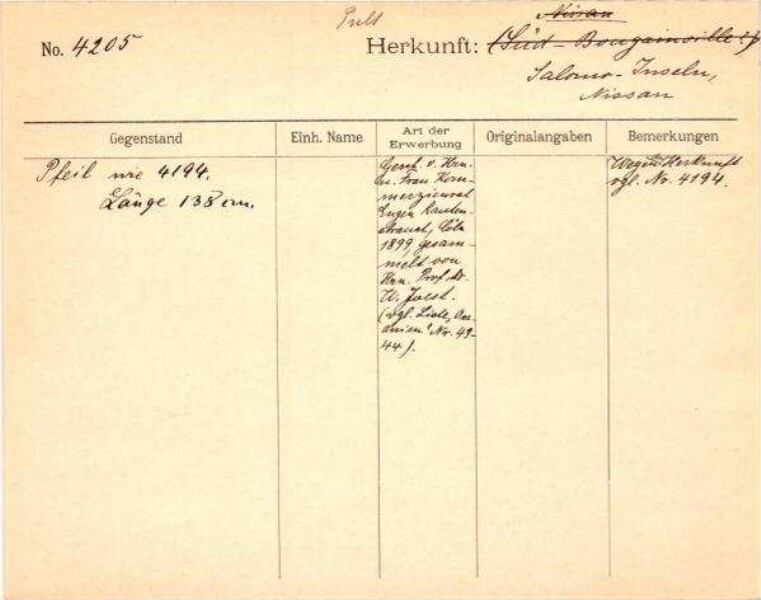 Pult
No. 4205
Herkunft: Nissan
(Süd-Bougainville?)
Salomo-Inseln,
Nissan
Gegenstand
Einh. Name
Art der
Erwerbung
Originalangaben
Bemerkungen
Pfeil wie 4194.
Länge 138 cm.
Gesch. v. Hrn.
u. Frau Kom-
merzienrat
Eugen Rauten-
strauch, Cöln
1899, gesam-
melt von
Hrn. Prof. Dr.
W. Joest.
(vgl. Liste „Oce-
anien“ Nr. 43-
44).
Wegen Herkunft
vgl. Nr. 4194.